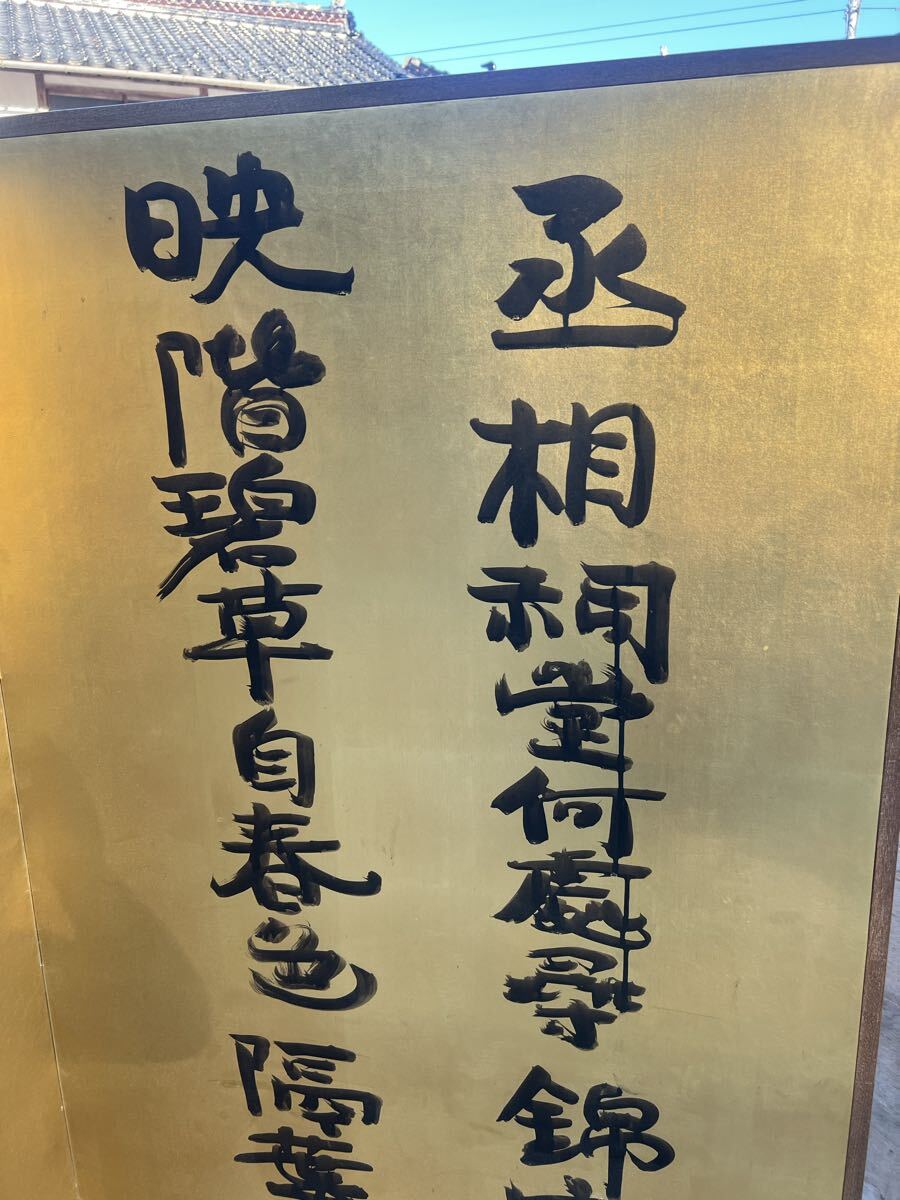 丞相祠堂何處尋錦
映階碧草自春色隔葉